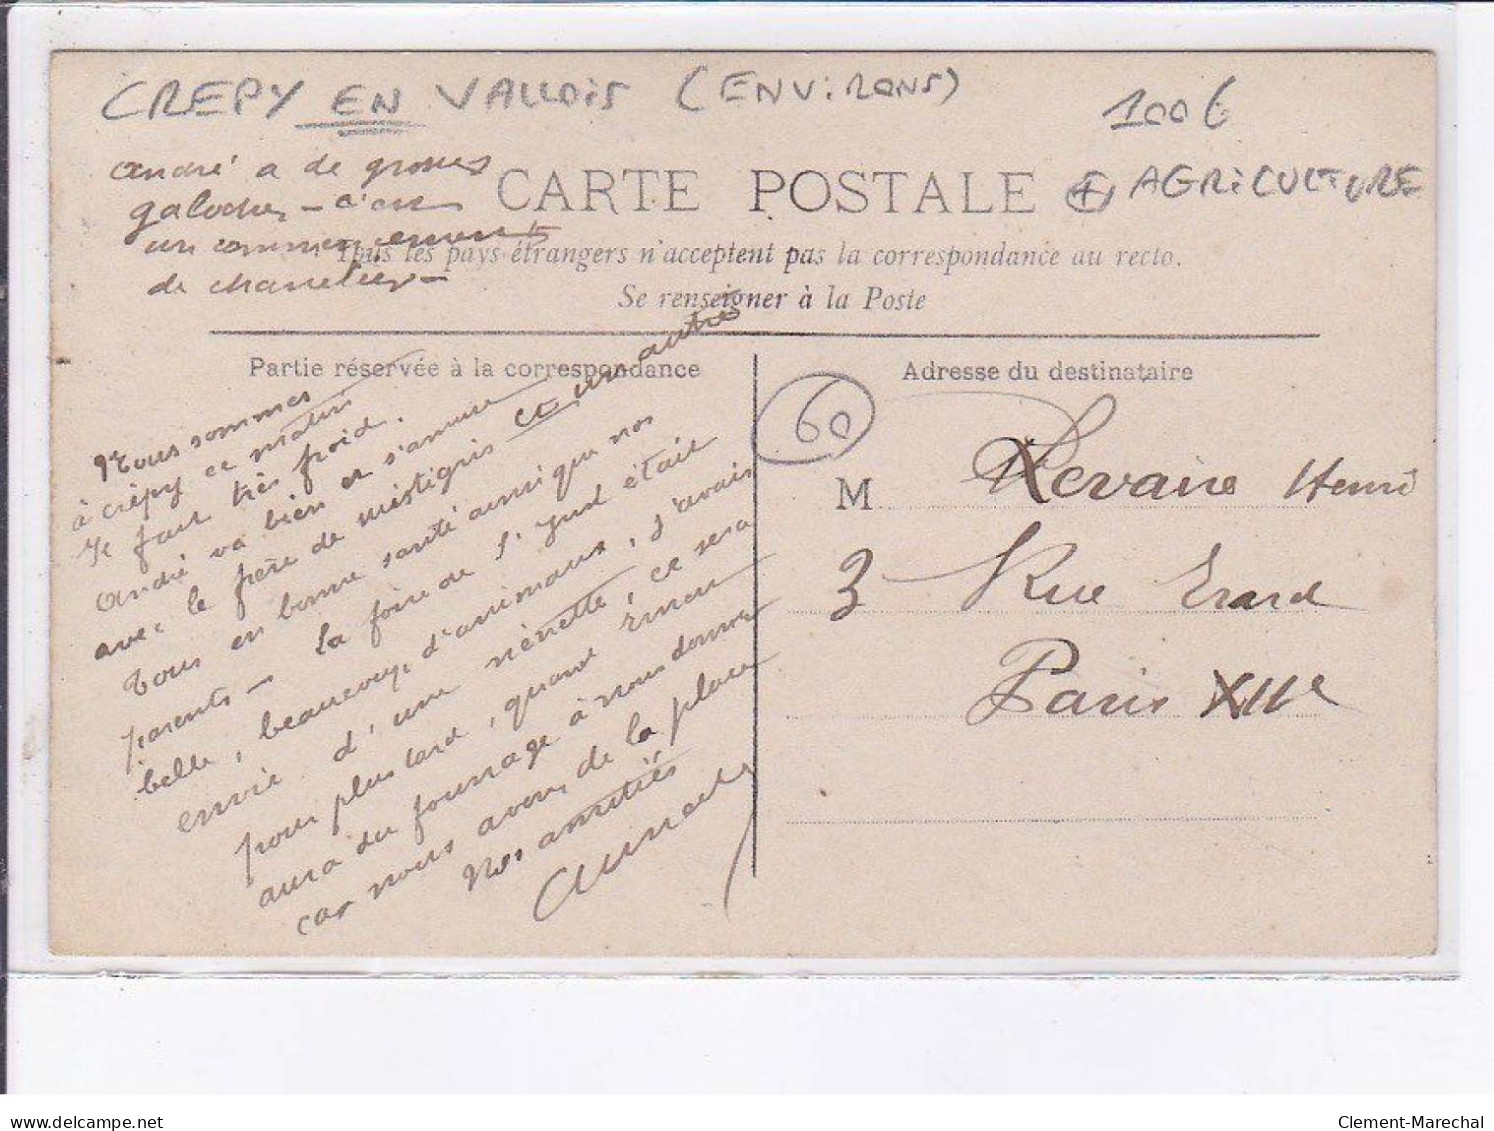 CREPY EN VALLOIS (ENVIRONS)
100€
André a de grosses
galoches - c'est
un commencement
de charretier -
CARTE POSTALE
+ AGRICULTURE
Tous les pays étrangers n'acceptent pas la correspondance au recto.
Se renseigner à la Poste
Partie réservée à la correspondance
Adresse du destinataire
60
Nous sommes
à crépy ce matin
Il fait très froid.
André va bien et s'amuse
avec le frère de mistigris et un autre
Tous en bonne santé ainsi que nos
parents - La foire de St Jud était
belle, beaucoup d'animaux, j'avais
envie d'une nénette, ce sera
pour plus tard, quand
aura du fourrage à nous donner
car nous avons de la place
Nos amitiés
M Levaire Henri
3 Rue Erard
Paris XIIe
delcampe.net
Clement-Marechal